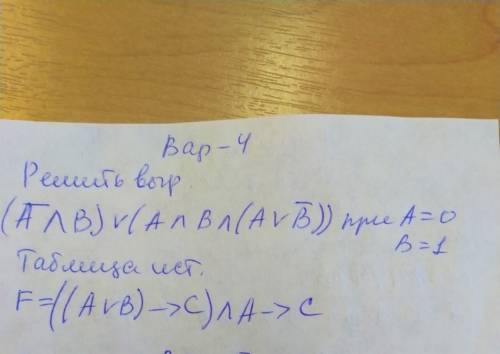 Вар-4
Решить выр.
(Ā∧B)∨(A∧B∧(A∨B̄)) при A=0
B=1
Таблица ист.
F=((A∨B)->C)∧A->C